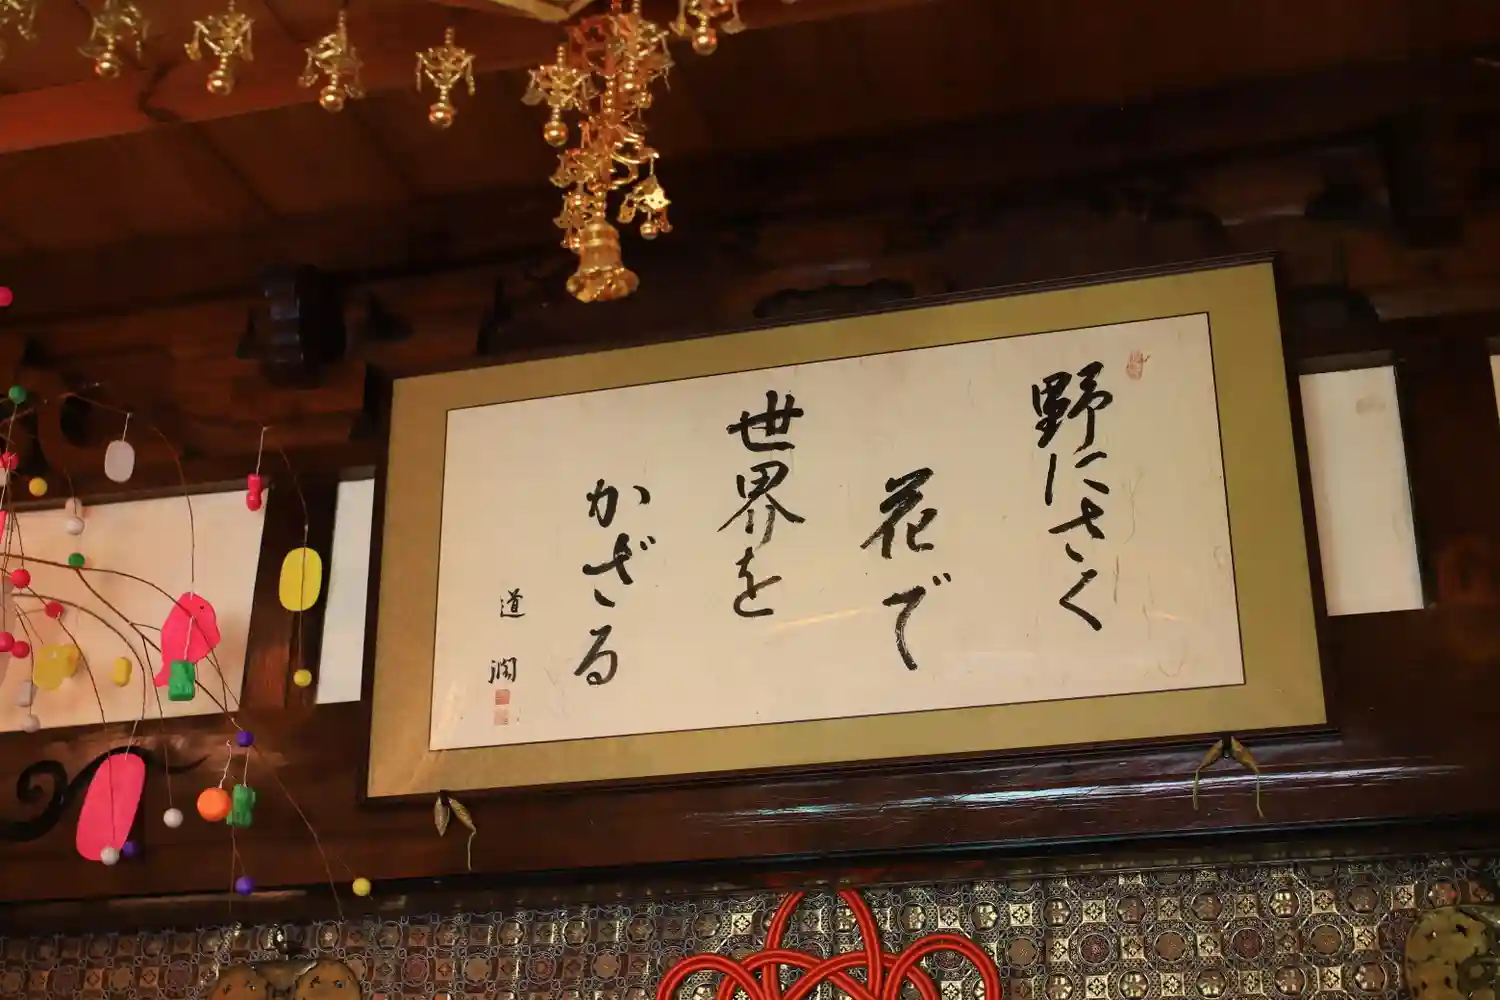 野にさく
花で
世界を
かざる
道
潤